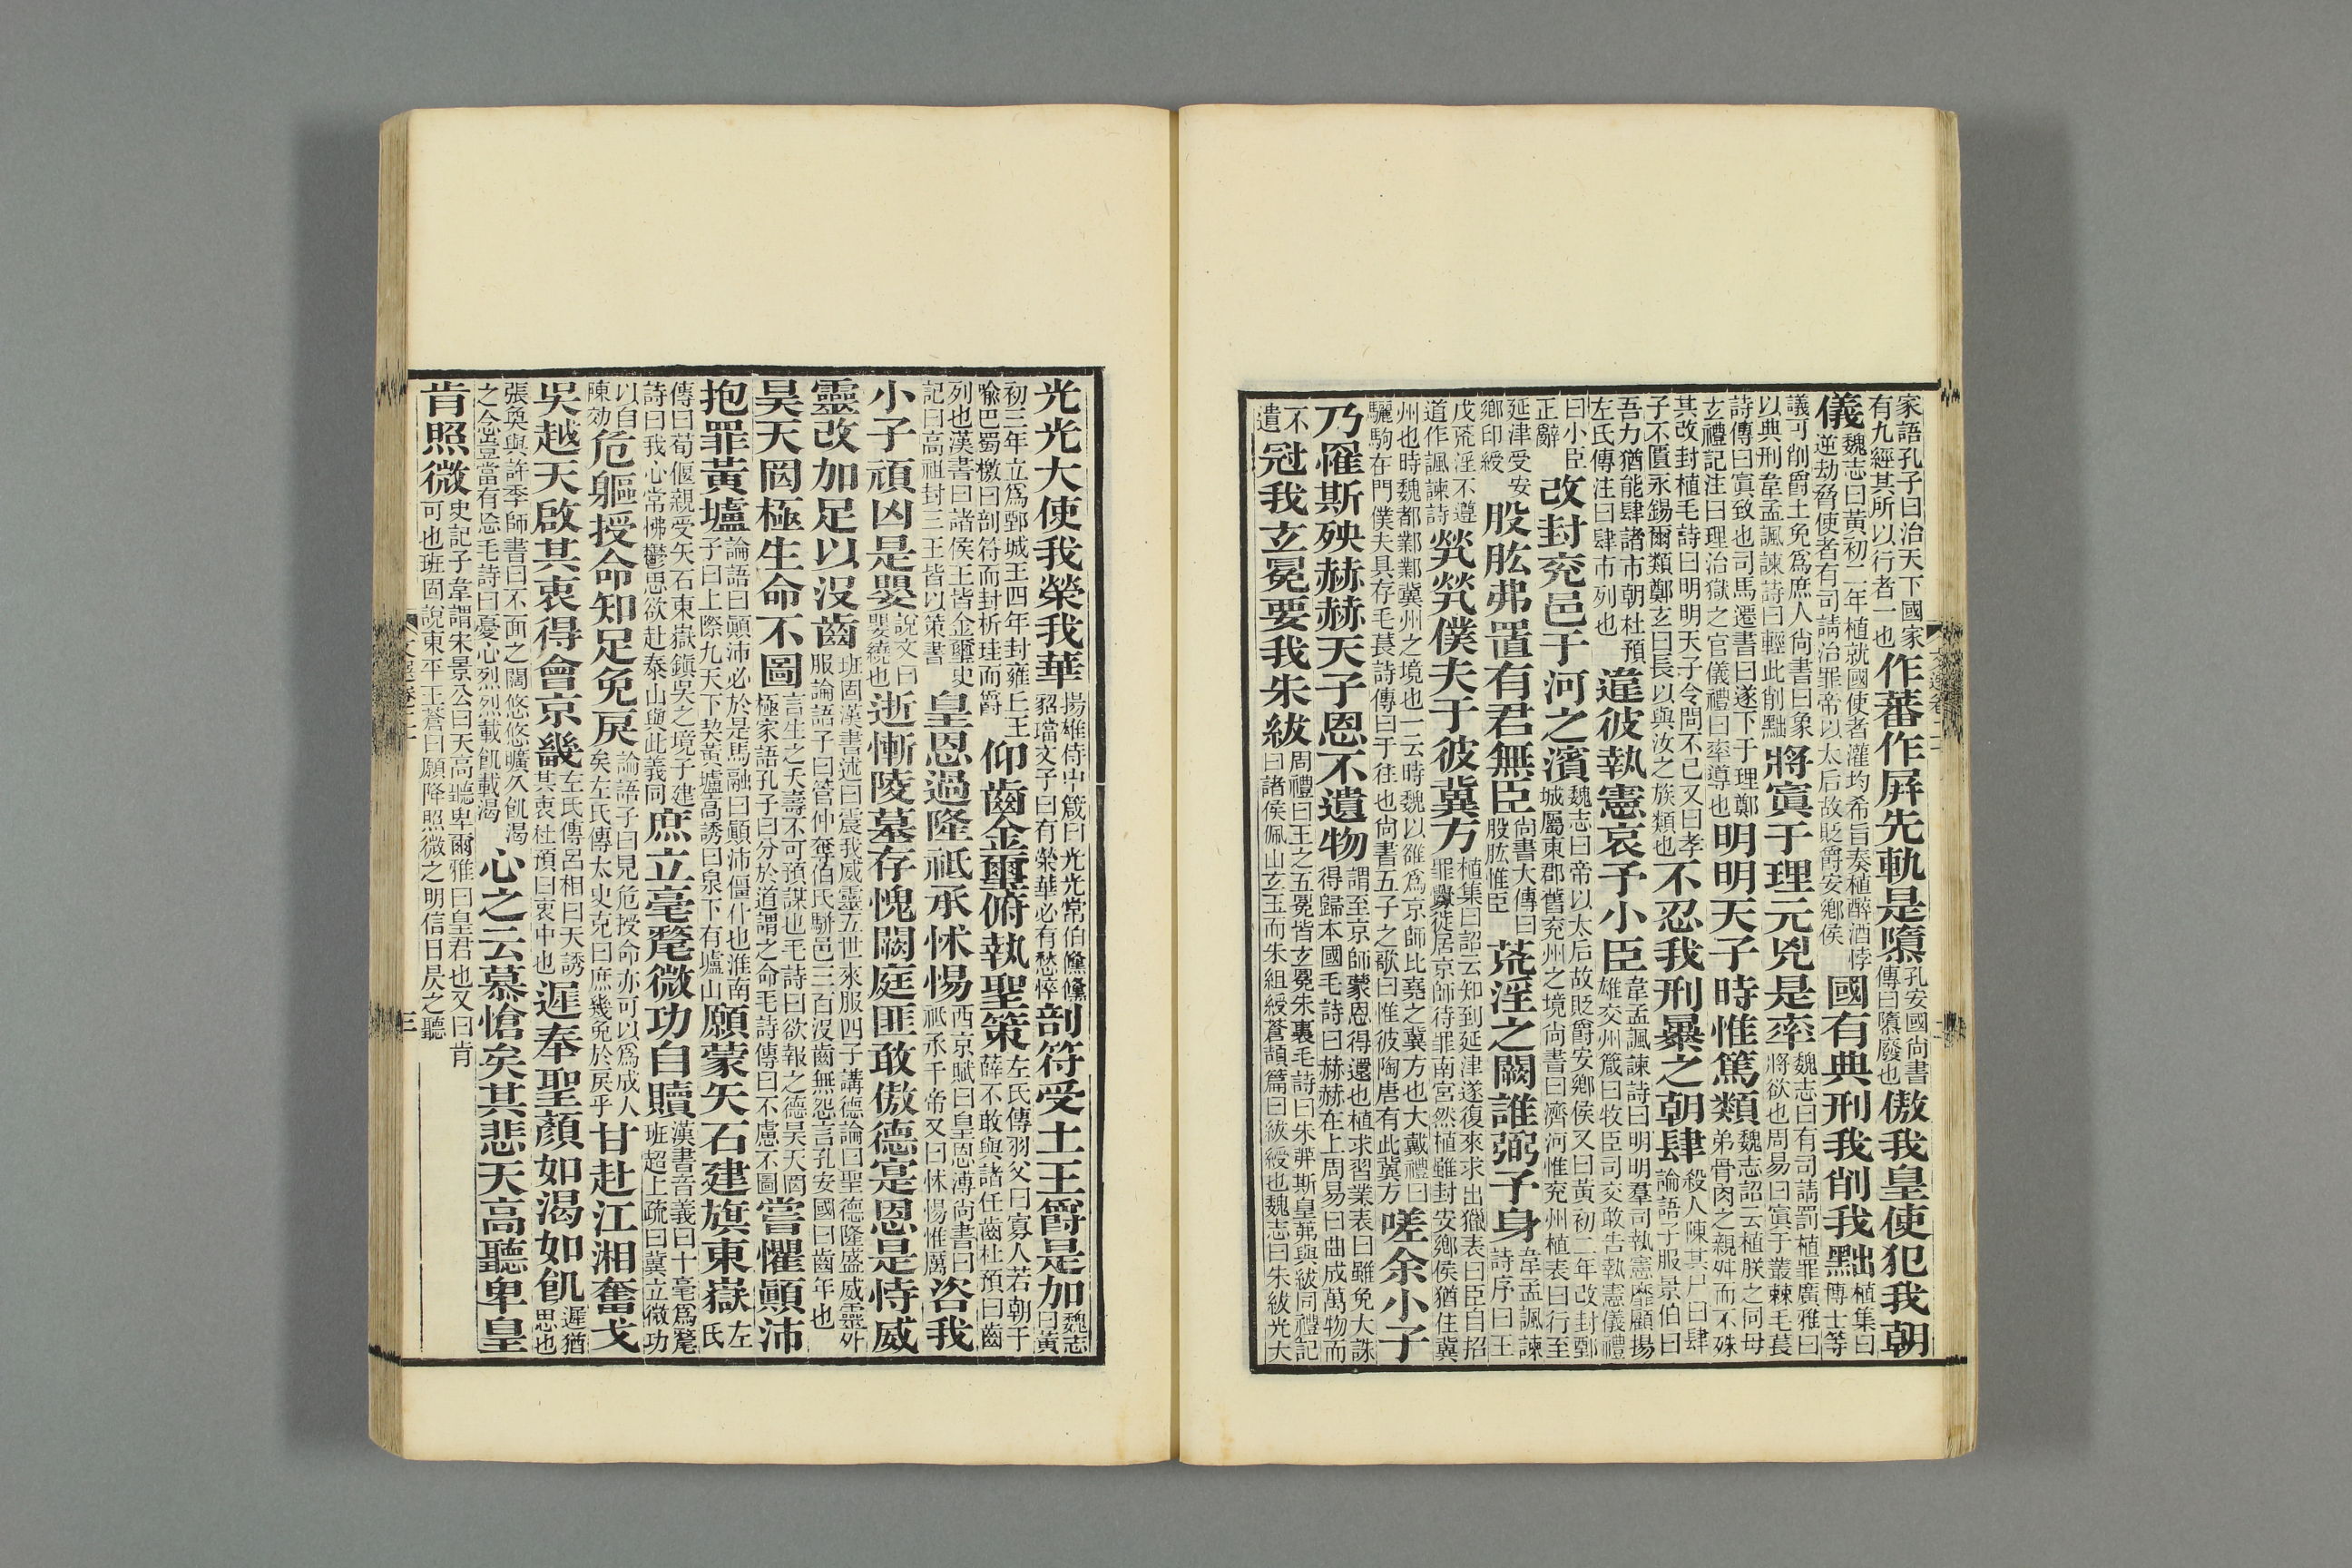 家語孔子曰治天下國家有九經其所以行者一也作蕃作屏先軌是隳孔安國尚書傳曰隳廢也傲我皇使犯我朝
儀魏志曰黃初二年植就國使者灌均希旨奏植醉酒悖逆劫脅使者有司請治罪帝以太后故貶爵安鄉侯國有典刑我削我黜植集曰博士等
議可削爵土免爲庶人尚書曰象以典刑韋孟諷諫詩曰輕此削黜將寘于理元兇是率魏志曰有司請罰植罪廣雅曰將欲也周易曰寘于叢棘毛萇
詩傳曰寘致也司馬遷書曰遂下于理鄭玄禮記注曰理治獄之官儀禮曰率導也明明天子時惟篤類魏志詔云植朕之同母弟骨肉之親舛而不殊
其改封植毛詩曰明明天子令問不已又曰孝子不匱永錫爾類鄭玄曰長以與汝之族類也不忍我刑暴之朝肆殺人陳其尸曰肆論語子服景伯曰
吾力猶能肆諸市朝杜預左氏傳注曰肆市列也違彼執憲哀予小臣韋孟諷諫詩曰明明羣司執憲靡顧揚雄交州箴曰牧臣司交敢告執憲儀禮
曰小臣正辭改封兗邑于河之濱魏志曰帝以太后故貶爵安鄉侯又曰黃初二年改封鄄城屬東郡舊兗州之境尚書曰濟河惟兗州植表曰行至
延津受安鄉印綬股肱弗置有君無臣尚書大傳曰股肱惟臣荒淫之闕誰弼予身韋孟諷諫詩序曰王
戊荒淫不遵道作諷諫詩煢煢僕夫于彼冀方植集曰詔云知到延津遂復來求出獵表曰臣自招罪釁徙居京師待罪南宮然植雖封安鄉侯猶住冀
州也時魏都鄴鄴冀州之境也一云時魏以雒爲京師比堯之冀方也大戴禮曰驪駒在門僕夫具存毛萇詩傳曰于往也尚書五子之歌曰惟彼陶唐有此冀方嗟余小子
乃罹斯殃赫赫天子恩不遺物謂至京師蒙恩得還也植求習業表曰雖免大誅得歸本國毛詩曰赫赫在上周易曰曲成萬物而
不遺冠我玄冕要我朱紱周禮曰王之五冕皆玄冕朱裏毛詩曰朱芾斯皇芾與紱同禮記曰諸侯佩山玄玉而朱組綬蒼頡篇曰紱綬也魏志曰朱紱光大
光光大使我榮我華揚雄侍中箴曰光光常伯儵儵貂璫文子曰有榮華必有愁悴剖符受土王爵是加魏志曰黃
初三年立爲鄄城王四年封雍丘王喻巴蜀檄曰剖符而封析珪而爵仰齒金璽俯執聖策左氏傳羽父曰寡人若朝于薛不敢與諸任齒杜預曰齒
列也漢書曰諸侯王皆金璽史記曰高祖封三王皆以策書皇恩過隆祗承怵惕西京賦曰皇恩溥尚書曰祗承于帝又曰怵惕惟厲咨我
小子頑凶是嬰說文曰嬰繞也逝慚陵墓存愧闕庭匪敢傲德寔恩是恃威
靈改加足以沒齒班固漢書述曰震我威靈五世來服四子講德論曰聖德隆盛威靈外服論語子曰管仲奪伯氏駢邑三百沒齒無怨言孔安國曰齒年也
昊天罔極生命不圖言生之夭壽不可預謀也毛詩曰欲報之德昊天罔極家語孔子曰分於道謂之命毛詩傳曰不慮不圖嘗懼顛沛
抱罪黃壚論語曰顛沛必於是馬融曰顛沛僵仆也淮南子曰上際九天下契黃壚高誘曰泉下有壚山願蒙矢石建旗東嶽左氏
傳曰荀偃親受矢石東嶽鎮吳之境子建詩曰我心常怫鬱思欲赴泰山與此義同庶立毫氂微功自贖漢書音義曰十毫爲氂班超上疏曰冀立微功
以自陳効危軀授命知足免戾論語子曰見危授命亦可以爲成人矣左氏傳太史克曰庶幾免於戾乎甘赴江湘奮戈
吳越天啟其衷得會京畿左氏傳呂相曰天誘其衷杜預曰衷中也遲奉聖顏如渴如飢遲猶思也
張奐與許季師書曰不面之闊悠悠曠久飢渴之念豈當有忘毛詩曰憂心烈烈載飢載渴心之云慕愴矣其悲天高聽卑皇
肯照微史記子韋謂宋景公曰天高聽卑爾雅曰皇君也又曰肯可也班固說東平王蒼曰願降照微之明信日昃之聽
三